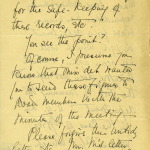 for the safe-keeping of
these records, etc.
You see the point?
Of course, I presume you
know that Miss deL wanted
you to send those
members with the
minutes of the meeting
Please forgive this